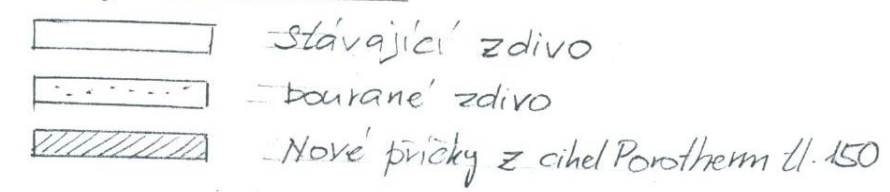 stávající zdivo
bourané zdivo
Nové příčky z cihel Porotherm tl. 150